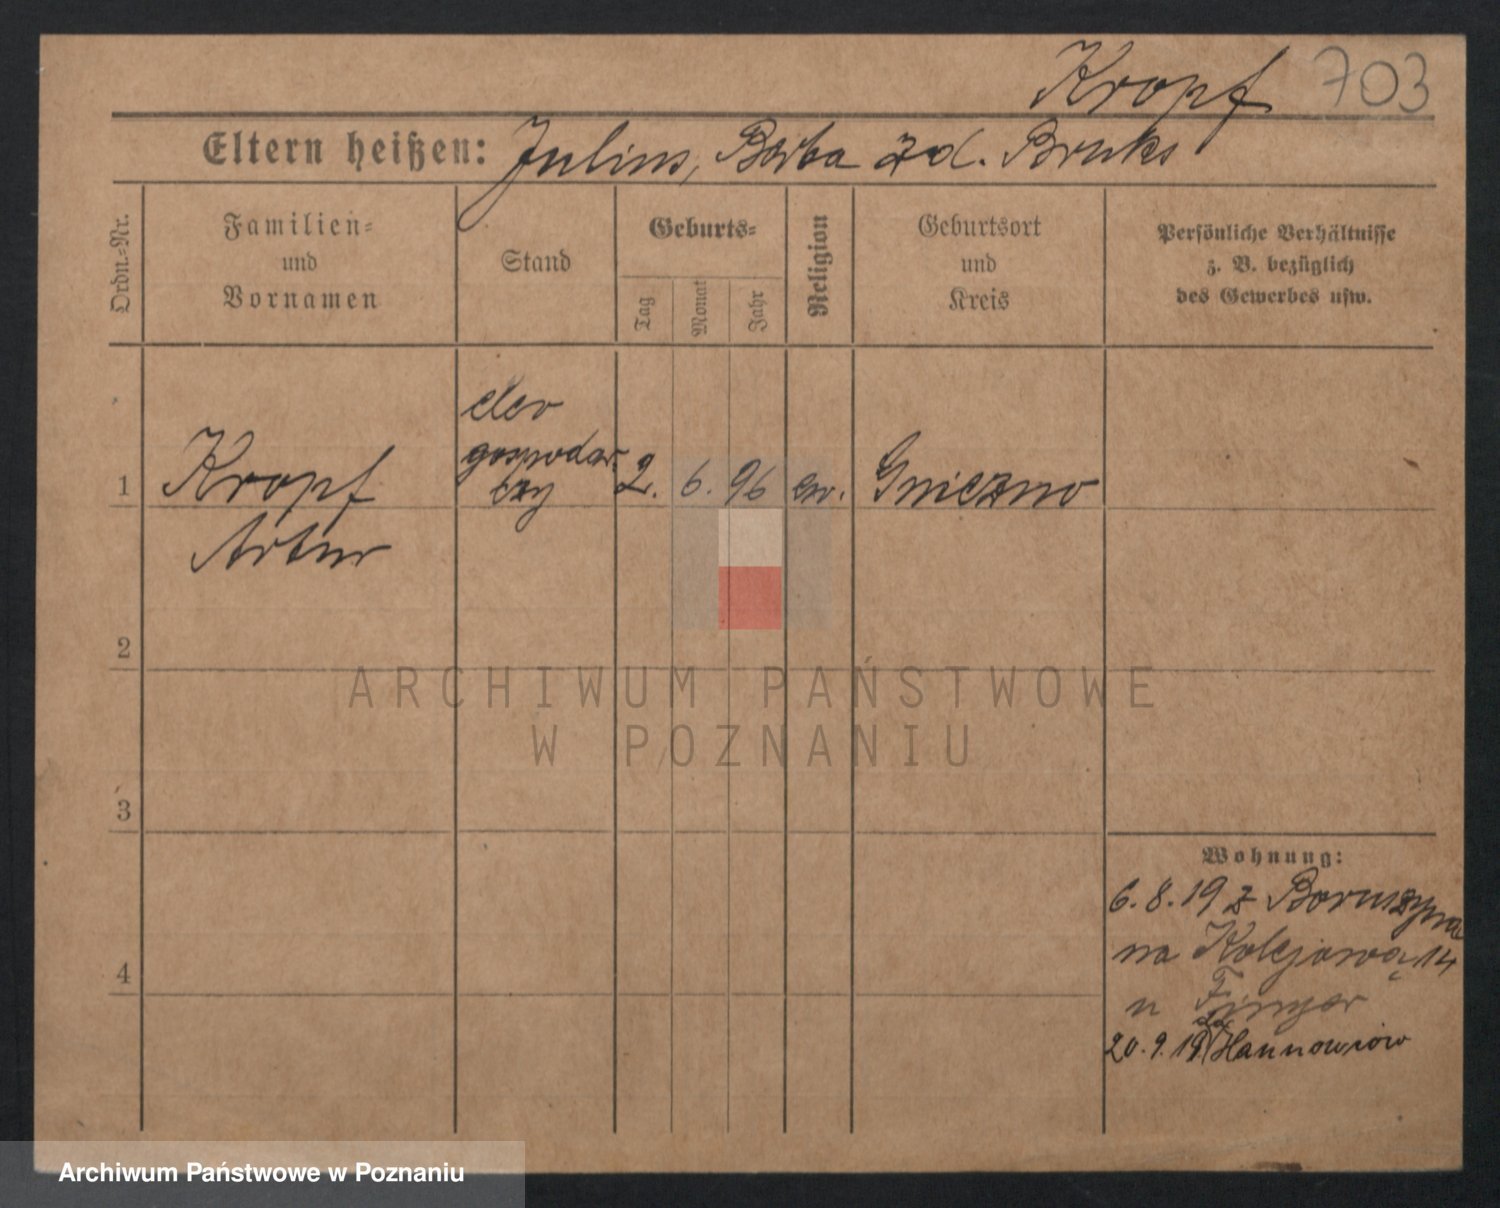 Kropf 703
Eltern heißen: Julius, Berba zd. Bruks
Ordn.-Nr.
Familien-
und
Vornamen
Stand
Geburts-
Tag
Monat
Jahr
Religion
Geburtsort
und
Kreis
Persönliche Verhältnisse
z. B. bezüglich
des Gewerbes usw.
elew
gospodar
czy
1 Kropf 2. 6. 96 ew. Gniezno
Artur
2
ARCHIWUM PAŃSTWOWE
W POZNANIU
3
Wohnung:
6. 8. 19 z Boruszyna
na Kolejową 14
4
u
20. 9. 19 Hannowiów
Archiwum Państwowe w Poznaniu